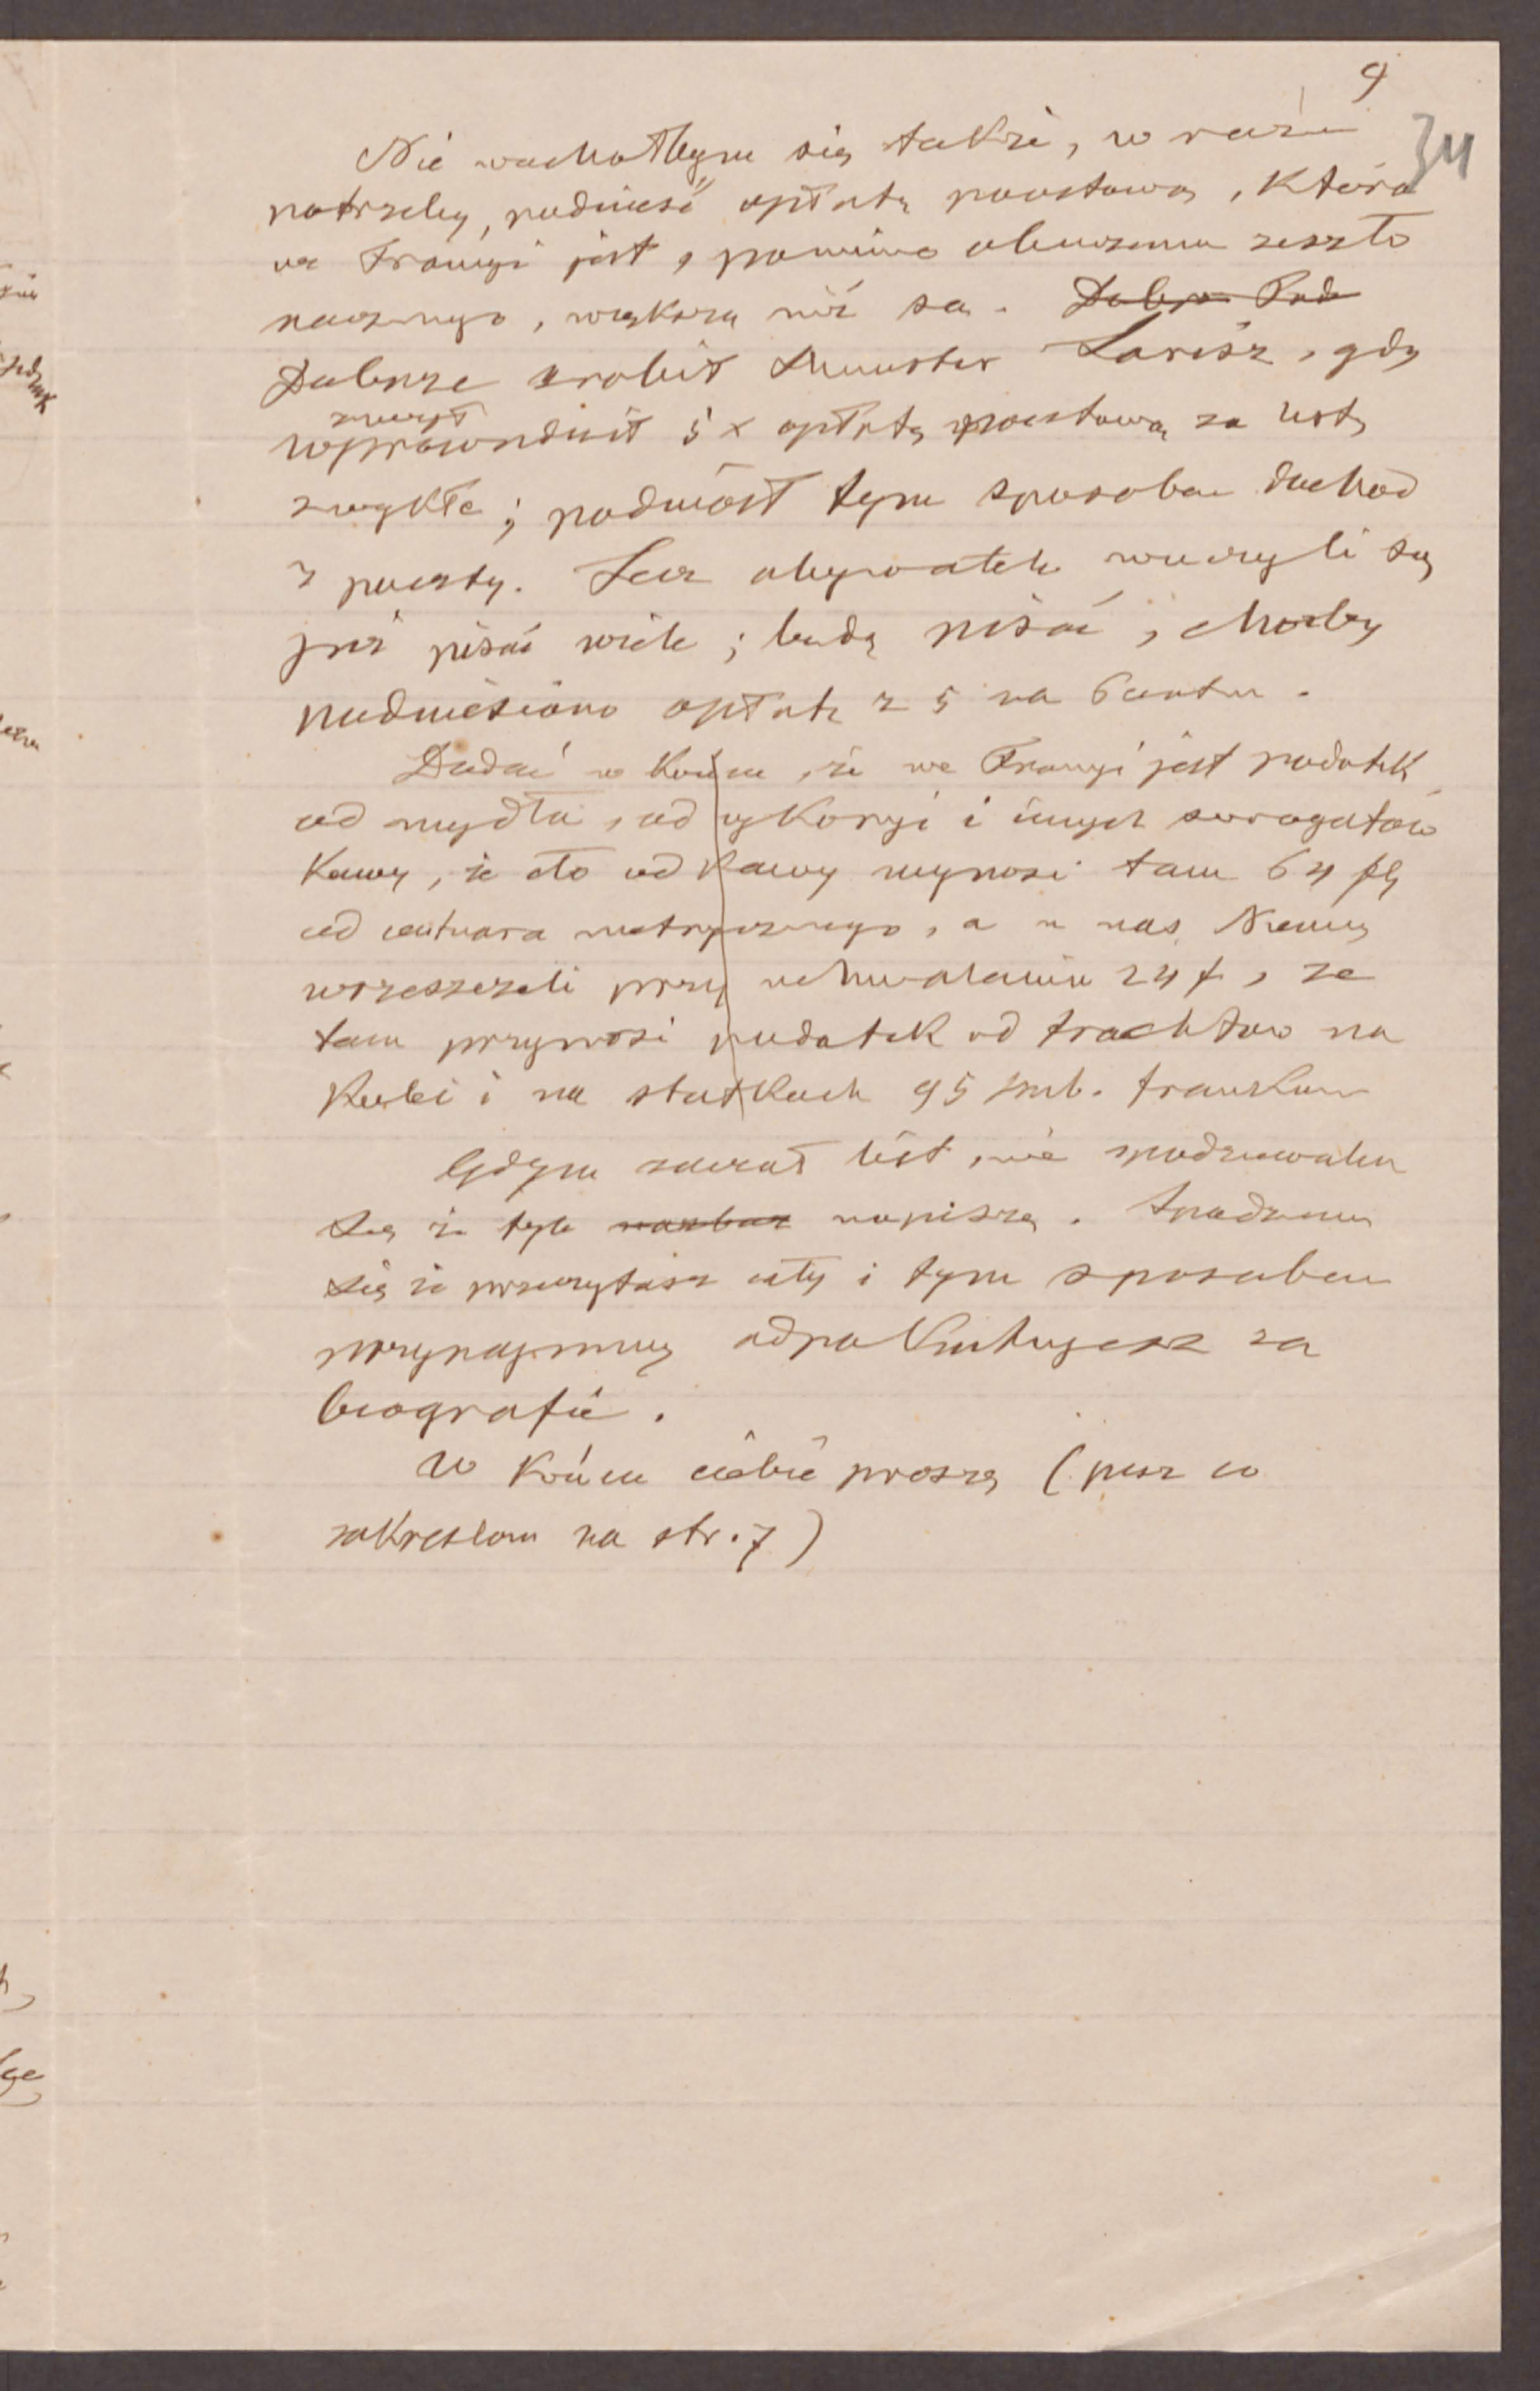 9
34
Nie wachałbym się także, w razie
potrzeby, podnieść opłatę pocztową, która
we Francyi jest, pomimo oburzenia zeszło
rocznego, większą niż są. Dobrze Pod
Dobrze zrobił Minister Larisz, gdy
zniżył
wprowadził 5 x opłatę pocztową za listy
zwykłe; podniósł tym sposobem dochód
z poczty. Lecz obywatele nauczyli się
już pisać wiele; będą pisać, choćby
podniesiono opłatę z 5 na 6 centów.
Dodać w końcu, że we Francyi jest podatek
od mydła, od cykoryi i innych surogatów
Kawy, że cło od Kawy wynosi tam 64 fl
od centnara metrycznego, a u nas Niemcy
wrzeszczeli przy uchwalaniu 24 f, że
tam przynosi podatek od frachtów na
Kolei i na statkach 95 mil. franków
Gdym zaczął list, nie spodziewałem
się że tyle napiszę. Spodziewam
się że przeczytasz cały i tym sposobem
przynajmniej odpokutujesz za
biografię.
W końcu ciebie proszę (pisz co
zakreślam na str. 7)